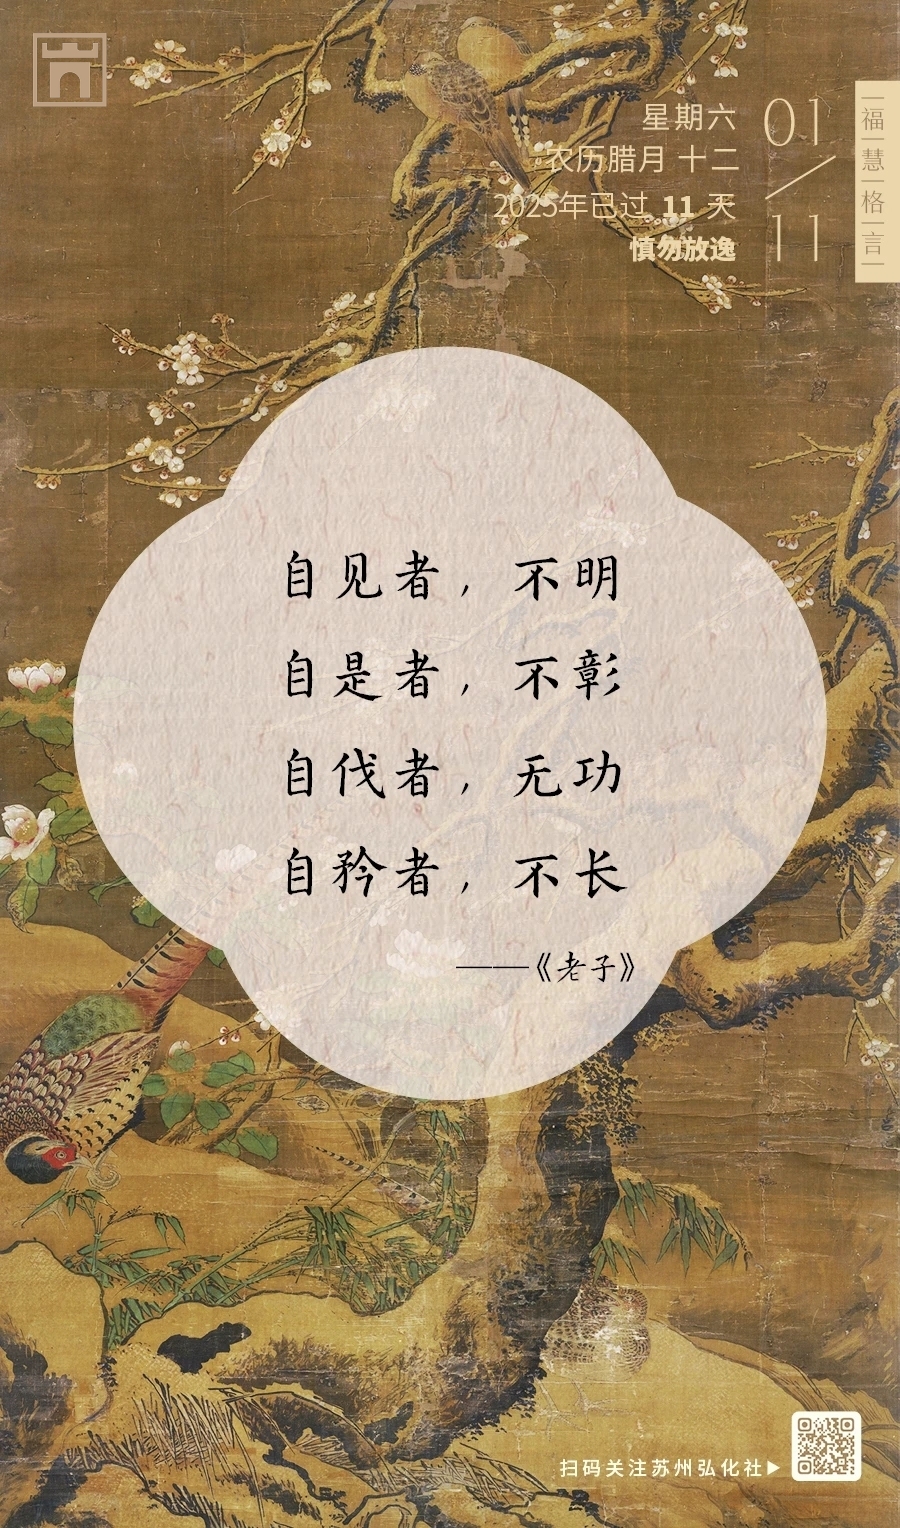 星期六
农历腊月 十二
2025年已过 11 天
慎勿放逸
01/11
福慧格言
自见者，不明
自是者，不彰
自伐者，无功
自矜者，不长
——《老子》
扫码关注苏州弘化社▶